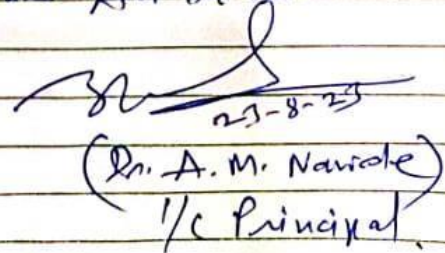 23-8-23
(Dr. A. M. Navide)
I/C Principal.